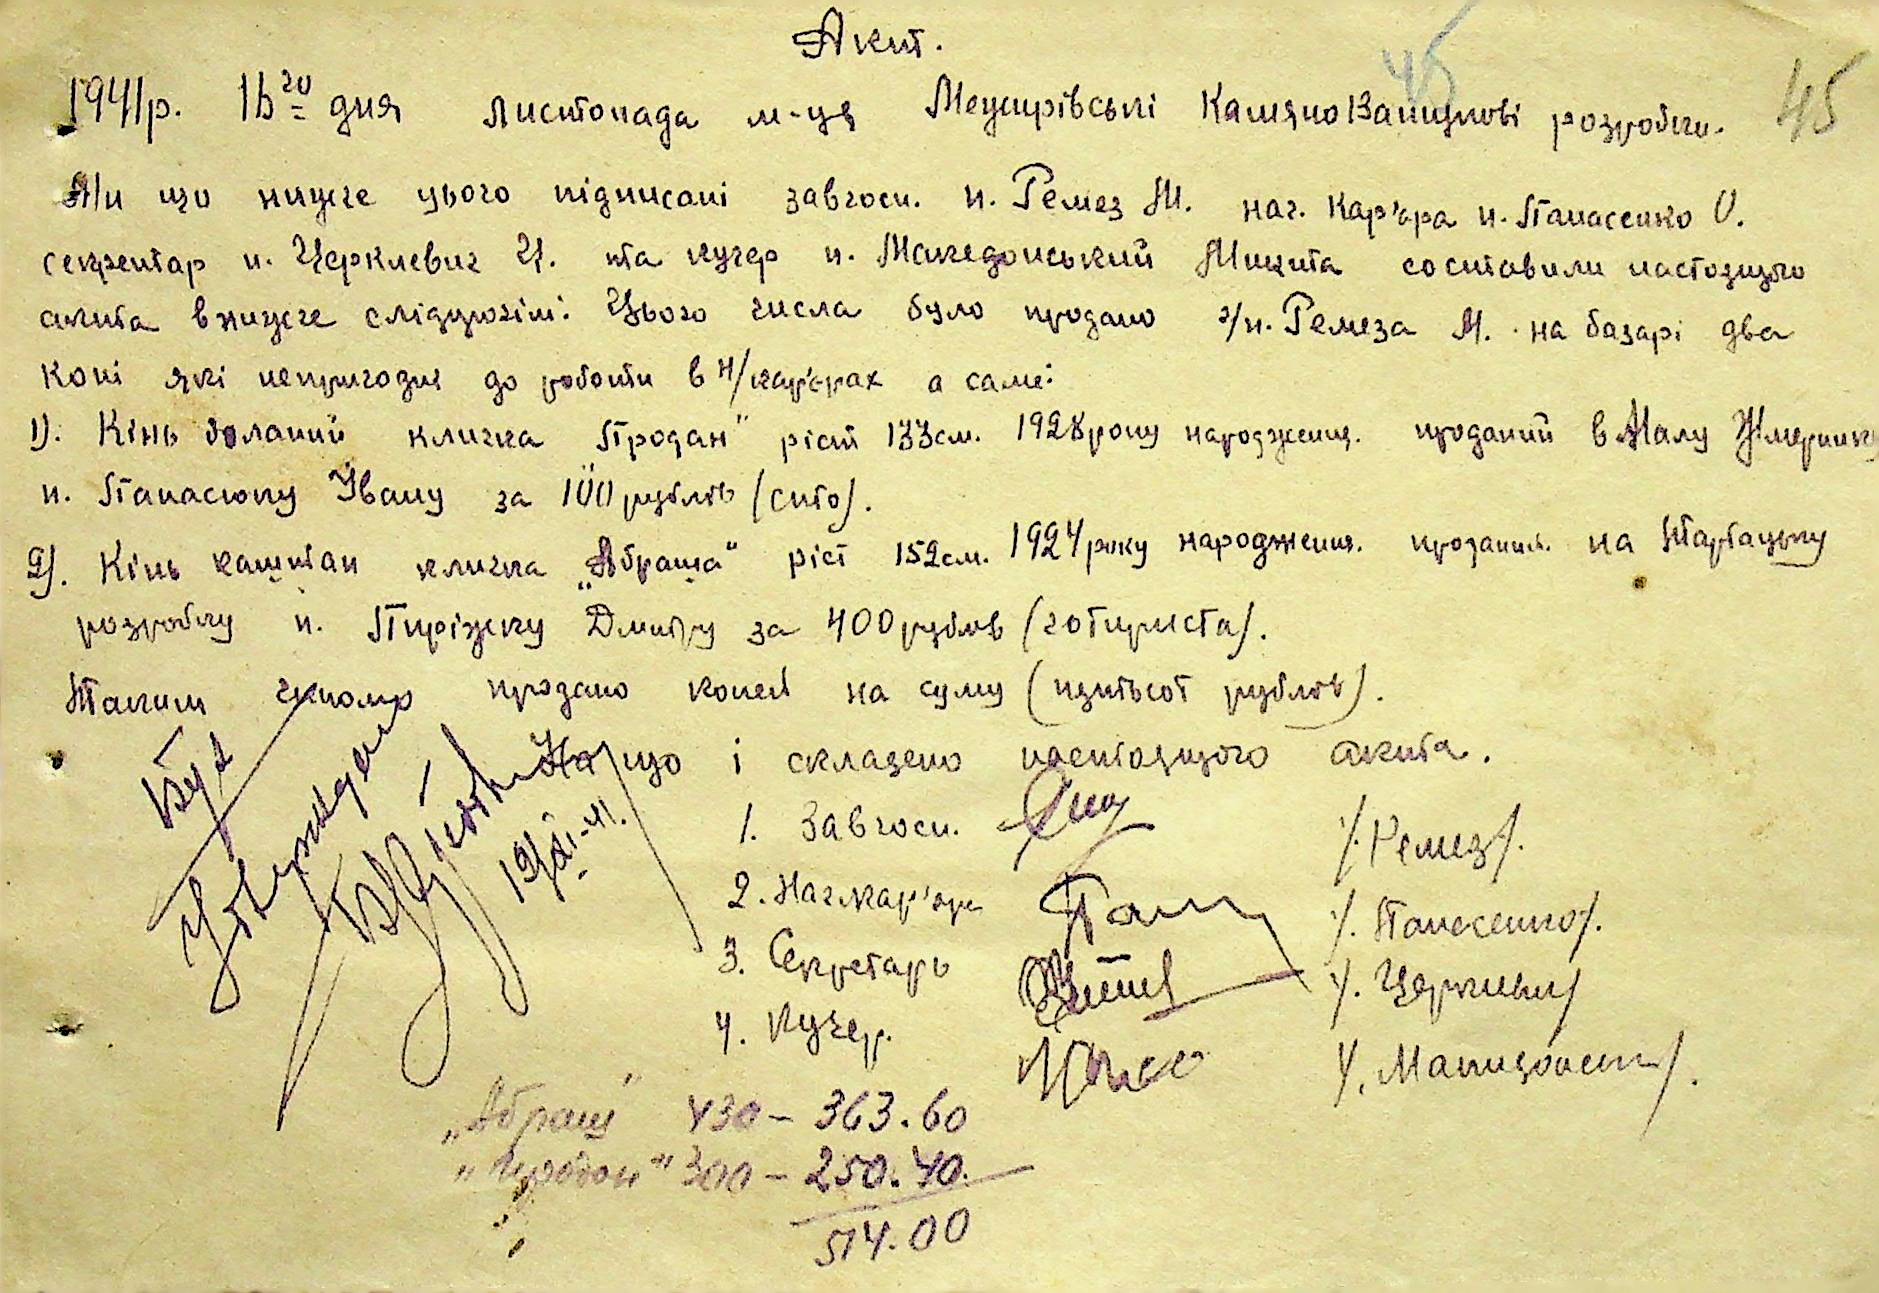 Акт.
45
45
1941р. 16го дня листопада м-ця Межирівські КамяноВапнові розробки.
Ми що нижче цього підписані завгосп. п. Ремез М. нач. Кар'єра п. Панасенко О.
секретар п. Церклевич Ц. та кучер п. Македонський Микита составили настоящого
акта внижче слідуючім: Цього числа було продано г/п. Ремеза М. на базарі два
коні які непригодні до роботи в н/кар'єрах а саме:
1). Кінь буланий кличка Продан" ріст 133см. 1928року народження. проданий в Малу Жмеринку
п. Панасюку Івану за 100 рублів (сто).
2). Кінь каштан кличка „Абраша" ріст 152см. 1924 року народження. проданий. на
розробку п. Пиріжку Дмитру за 400 рублів (чотириста).
Таким чином продано коней на суму (пятьсот рублів).
На що і складено настоящого акта.
Утверждаю
19/XI-41.
1. Завгосп. /. Ремез/.
2. Нач.кар'єра /. Панасенко/.
3. Секретарь /. Церклевич/
4. Кучер. /. Македонський/.
„Абраш" 430 - 363.60
„Продан" 300 - 250.40.
514.00